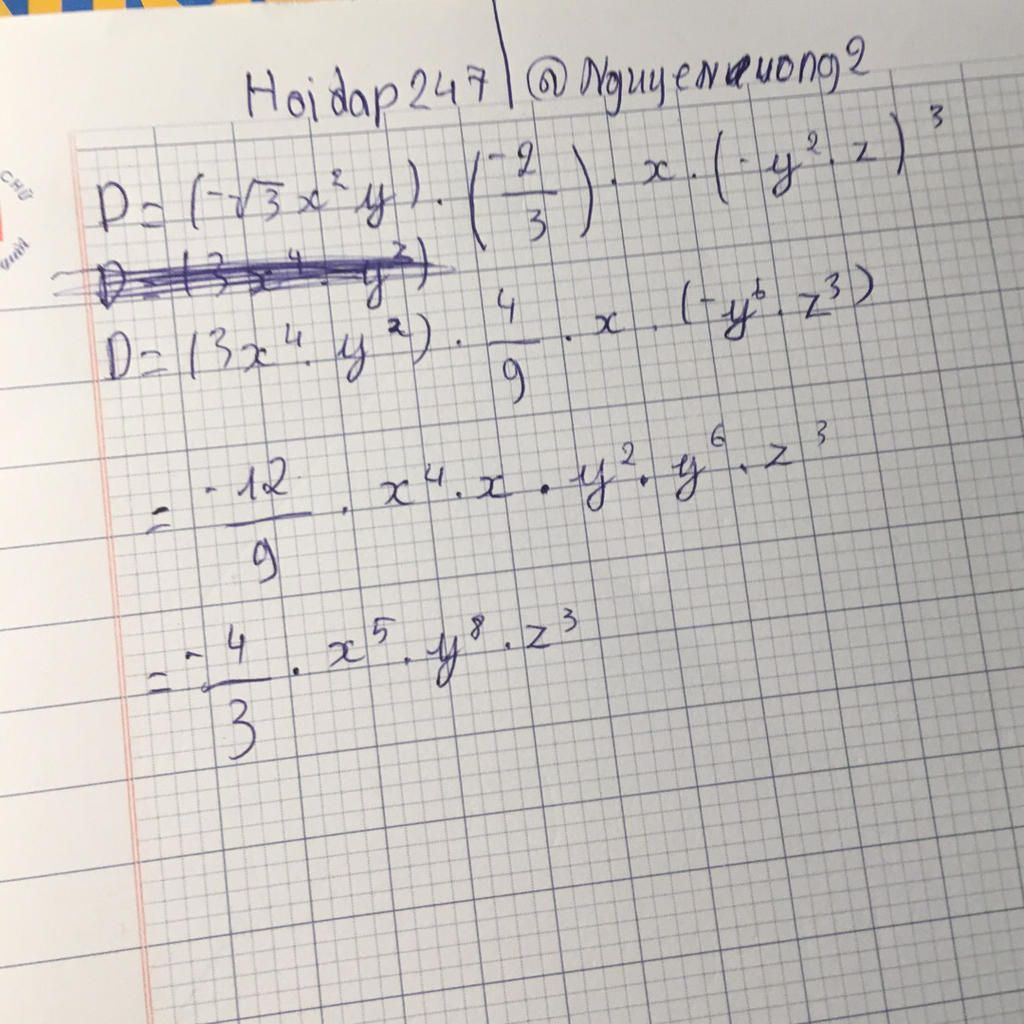 Hoidap247 | @Nguyencuong2
D = (-√3x² y) . (-2/3) . x . (-y² . z)³
D = (3x⁴ . y²)
D = (3x⁴ . y²) . 4/9 . x . (-y⁶ . z³)
= -12/9 . x⁴ . x . y² . y⁶ . z³
= -4/3 . x⁵ . y⁸ . z³